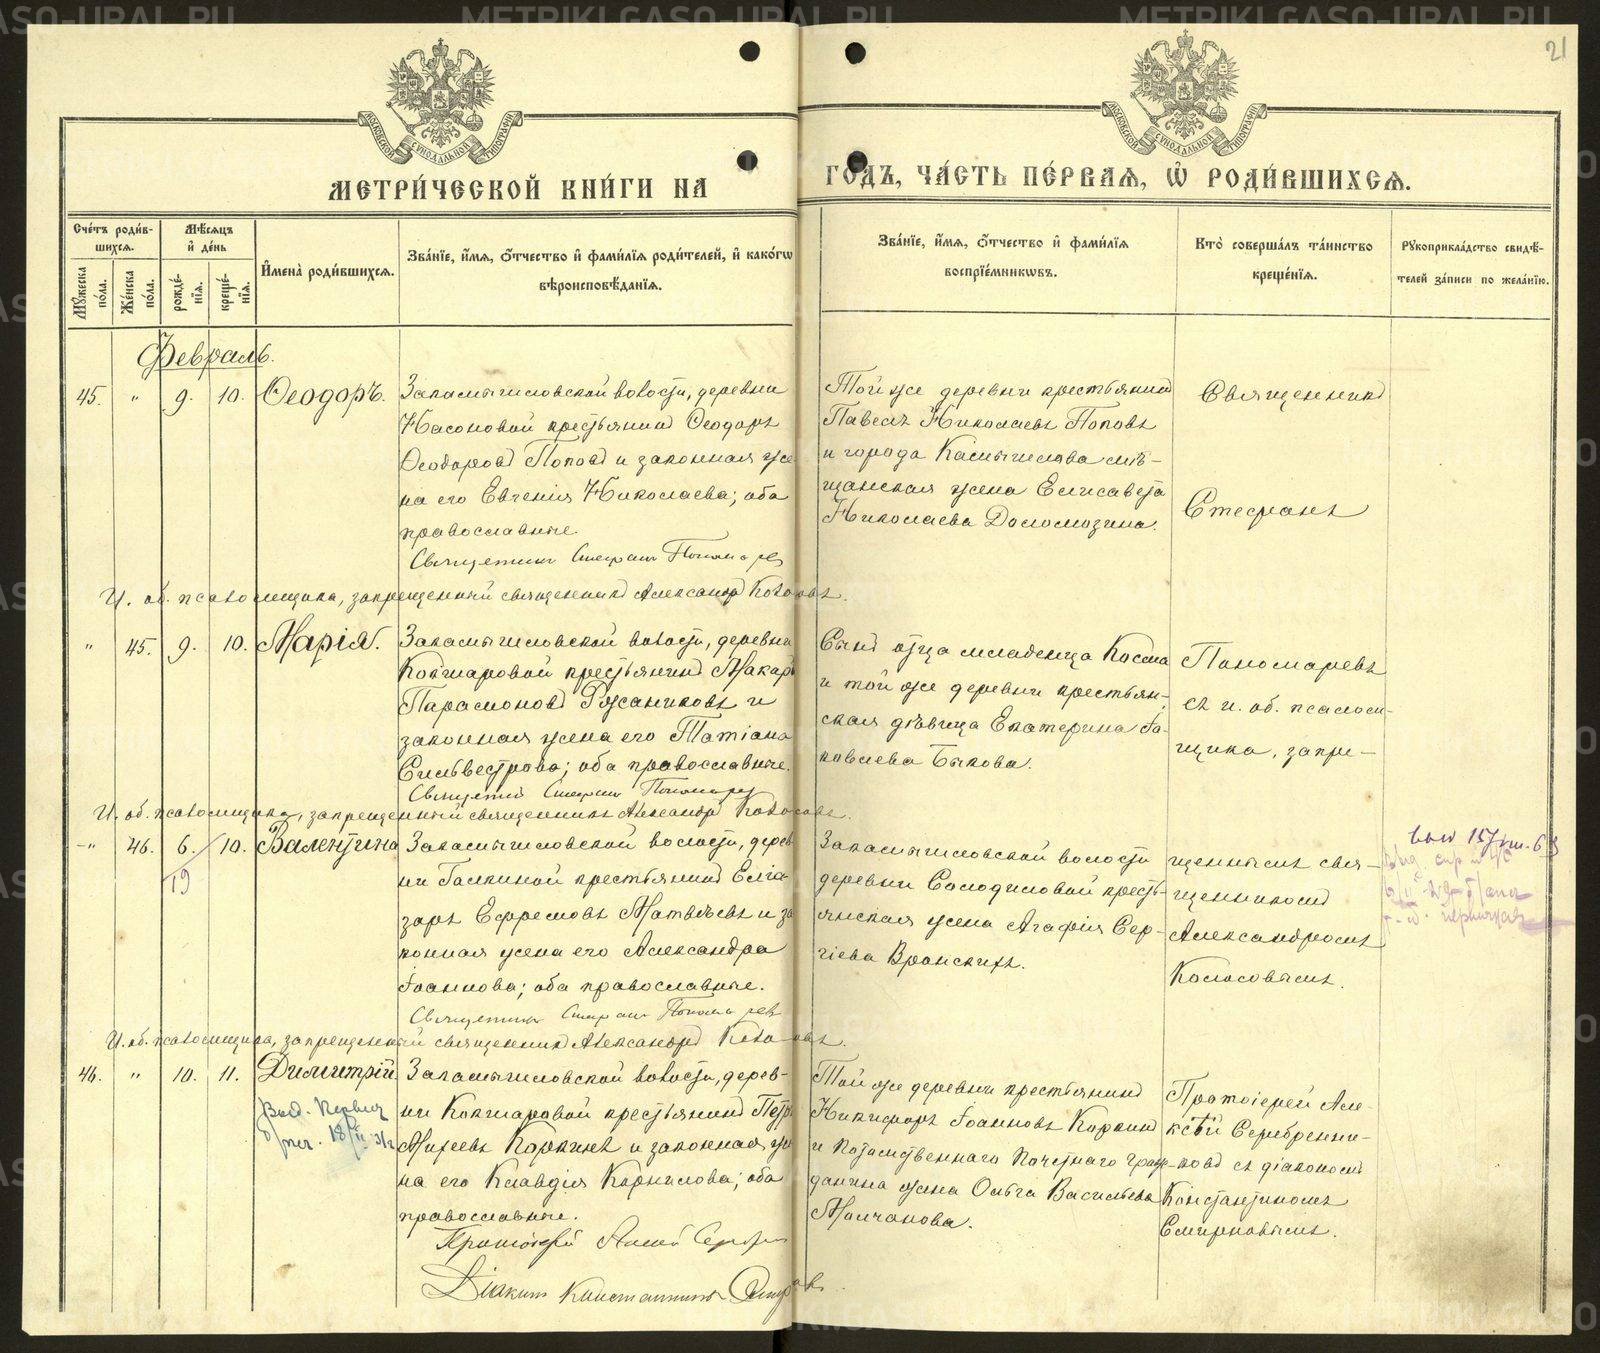 21
МЕТРИ́ЧЕСКОЙ КНИ́ГИ НА
ГОДЪ, ЧА́СТЬ ПЕ́РВАѦ, Ѡ҆ РОДИ́ВШИХСѦ.
Сче́тъ роди́в-
шихсѧ.
Мꙋ́жеска по́ла.
Же́нска по́ла.
Мѣ́сѧцъ
и҆ де́нь
рожде́-
нїѧ.
креще́-
нїѧ.
И҆мена̀ роди́вшихсѧ.
Зва́нїе, и҆́мѧ, ѻ҆́тчество и҆ фами́лїѧ роди́телей, и҆ како́гѡ
вѣроисповѣ́данїѧ.
Зва́нїе, и҆́мѧ, ѻ҆́тчество и҆ фами́лїѧ
воспрїе́мникѡвъ.
Кто̀ соверша́лъ та́инство
креще́нїѧ.
Рꙋкоприкла́дство свидѣ́-
телей за́писи по жела́нїю.
Февраль.
45. " 9. 10. Ѳеодоръ.
Закамышловской волости, деревни
Насоновой крестьянинъ Ѳеодоръ
Ѳеодоровъ Поповъ и законная же
на его Евгенія Николаева; оба
православные.
Священникъ Стефанъ Пономарев
Той же деревни крестьянинъ
Павелъ Николаевъ Поповъ
и города Камышлова мѣ-
щанская жена Елисавета
Николаева Доломозина.
Священникъ
Стефанъ
И. об. псаломщика, запрещенный священникъ Александръ Колосовъ.
" 45. 9. 10. Марія.
Закамышловской волости, деревни
Кокшаровой крестьянинъ Макаръ
Парамоновъ Ружаниковъ и
законная жена его Татіана
Сильвестрова; оба православные.
Священникъ Стефанъ Пономарев
Сынъ отца младенца Косма
и той же деревни крестьян-
ская дѣвица Екатерина Іа-
ковлева Быкова.
Пономаревъ
съ и. об. псалом-
щика, запре-
И. об. псаломщика, запрещенный священникъ Александръ Колосовъ.
" 46. 6. 10. Валентина
19
Закамышловской волости, дерев
ни Галкиной крестьянинъ Елеа-
заръ Ефремовъ Матвѣевъ и за
конная жена его Александра
Іоаннова; оба православные.
Священникъ Стефанъ Пономарев
Закамышловской волости
деревни Солодиловой кресть-
янская жена Агафія Сер-
гіева Вронскихъ.
щеннымъ свя-
щенникомъ
Александромъ
Колосовымъ.
И. об. псаломщика, запрещенный священникъ Александръ Колосовъ.
46. " 10. 11. Димитрій
18/II 31 г
Закамышловской волости, дерев-
ни Кокшаровой крестьянинъ Петръ
Михеевъ Коркинъ и законная же
на его Клавдія Корнилова; оба
православные.
Протоіерей Алексій Серебрен
Діаконъ Константинъ Смирнов
Той же деревни крестьянинъ
Никифоръ Іоанновъ Коркинъ
и Потомственнаго Почетнаго Граж-
данина жена Ольга Васильева
Молчанова.
Протоіерей Але-
ксѣй Серебренни-
ковъ съ діакономъ
Константиномъ
Смирновымъ.